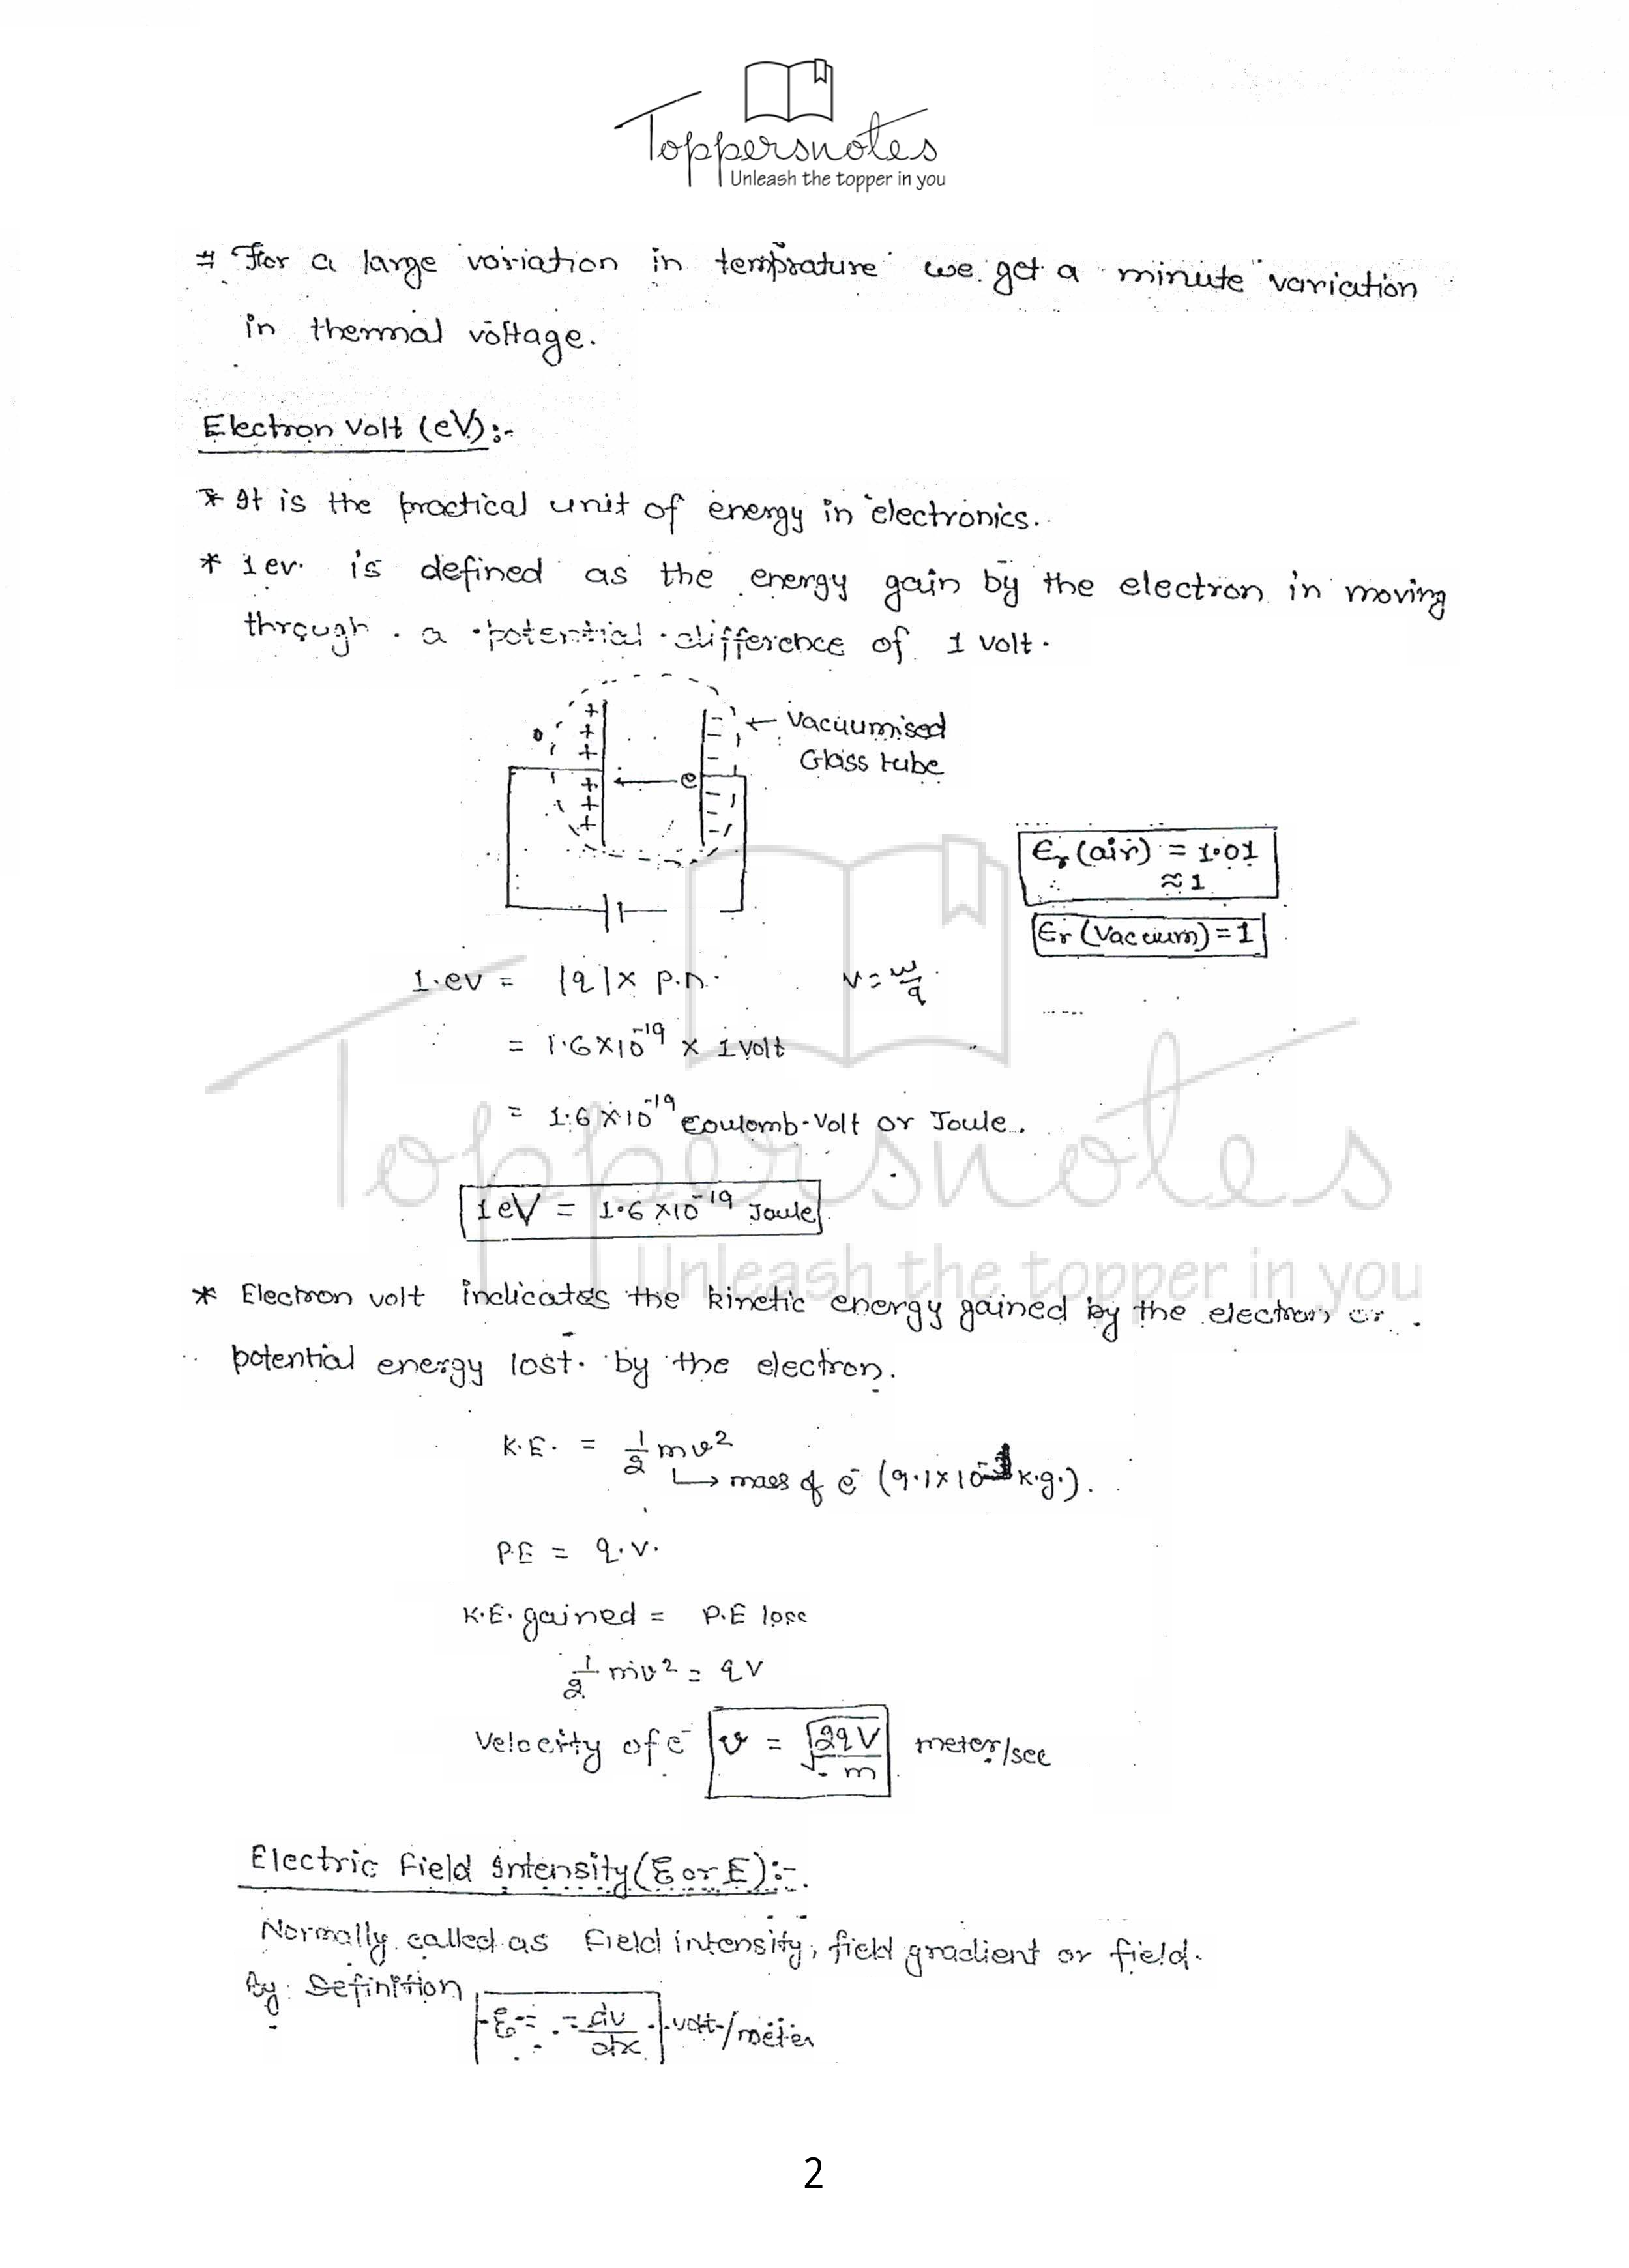 Toppersnotes
Unleash the topper in you
# For a large variation in temprature we get a minute variation
in thermal voltage.
Electron Volt (eV):-
* It is the practical unit of energy in electronics.
* 1 ev. is defined as the energy gain by the electron in moving
through a potential difference of 1 volt.
+ + + + + +
e
← Vacuumised
Glass tube
εr (air) = 1.01
≈ 1
εr (Vaccum) = 1
1.ev = |q| x p.D. V = w/q
= 1.6 x 10^-19 x 1 volt
= 1.6 x 10^-19 Coulomb-Volt or Joule.
1 eV = 1.6 x 10^-19 Joule
Toppersnotes
Unleash the topper in you
* Electron volt indicates the kinetic energy gained by the electron or
potential energy lost by the electron.
K.E. = 1/2 mv²
↳ mass of e⁻ (9.1 x 10 K.g.).
PE = q.V.
K.E. gained = P.E loss
1/2 mv² = qV
Velocity of e⁻ v = √(2qV/m) meter/sec
Electric Field Intensity (Ɛ or E):-
Normally called as Field intensity, field gradient or field.
By Definition
Ɛ = dv/dx volt/meter
2